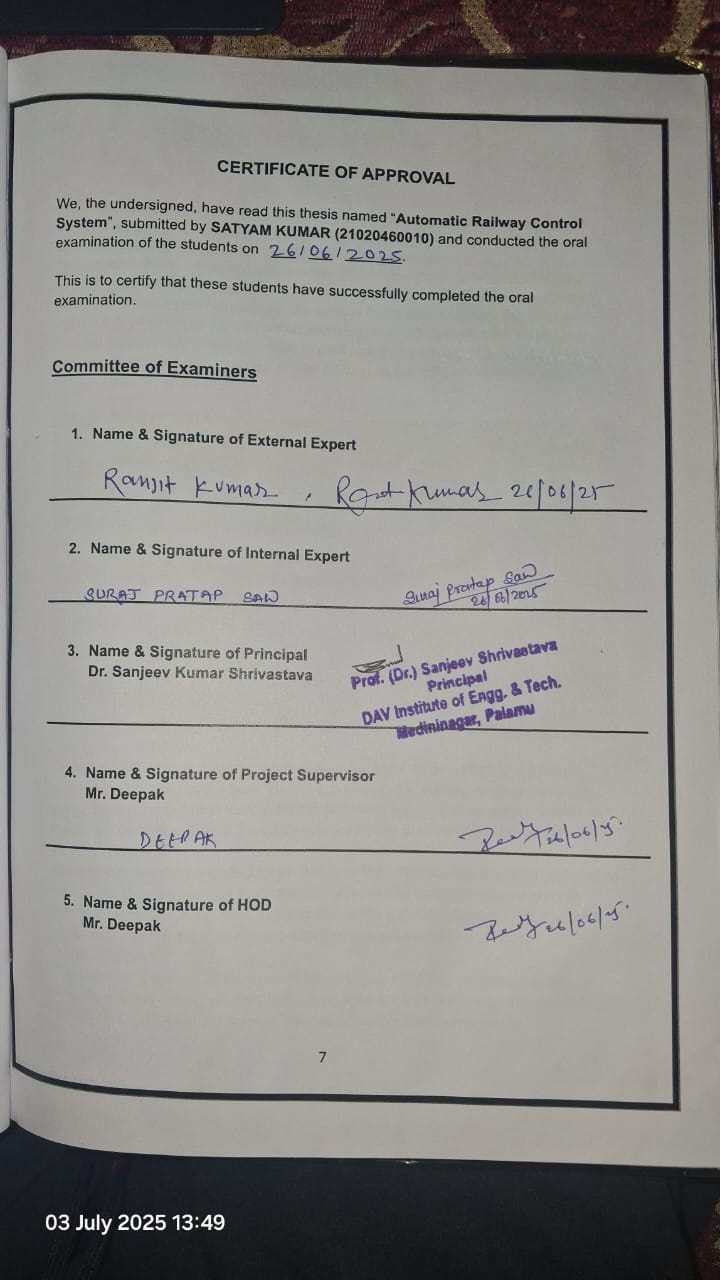 CERTIFICATE OF APPROVAL
We, the undersigned, have read this thesis named "Automatic Railway Control
System", submitted by SATYAM KUMAR (21020460010) and conducted the oral
examination of the students on 26/06/2025.
This is to certify that these students have successfully completed the oral
examination.
Committee of Examiners
1. Name & Signature of External Expert
Ranjit Kumar, Kumar 26/06/25
2. Name & Signature of Internal Expert
SURAJ PRATAP SAW Suraj Pratap Saw
26/06/2025
3. Name & Signature of Principal
Dr. Sanjeev Kumar Shrivastava
Prof. (Dr.) Sanjeev Shrivastava
Principal
DAV Institute of Engg. & Tech.
Medininagar, Palamu
4. Name & Signature of Project Supervisor
Mr. Deepak
DEEPAK 26/06/25.
5. Name & Signature of HOD
Mr. Deepak
26/06/25.
7
03 July 2025 13:49